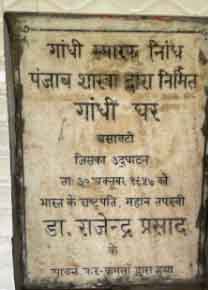 गांधी स्मारक निधि
पंजाब शाखा द्वारा निर्मित
गांधी घर
जिसका उद्घाटन
ता: ३० अक्तूबर १९५७ को
भारत के राष्ट्रपति, महान तपस्वी
डा. राजेन्द्र प्रसाद
के
पावन कर-कमलों द्वारा हुआ